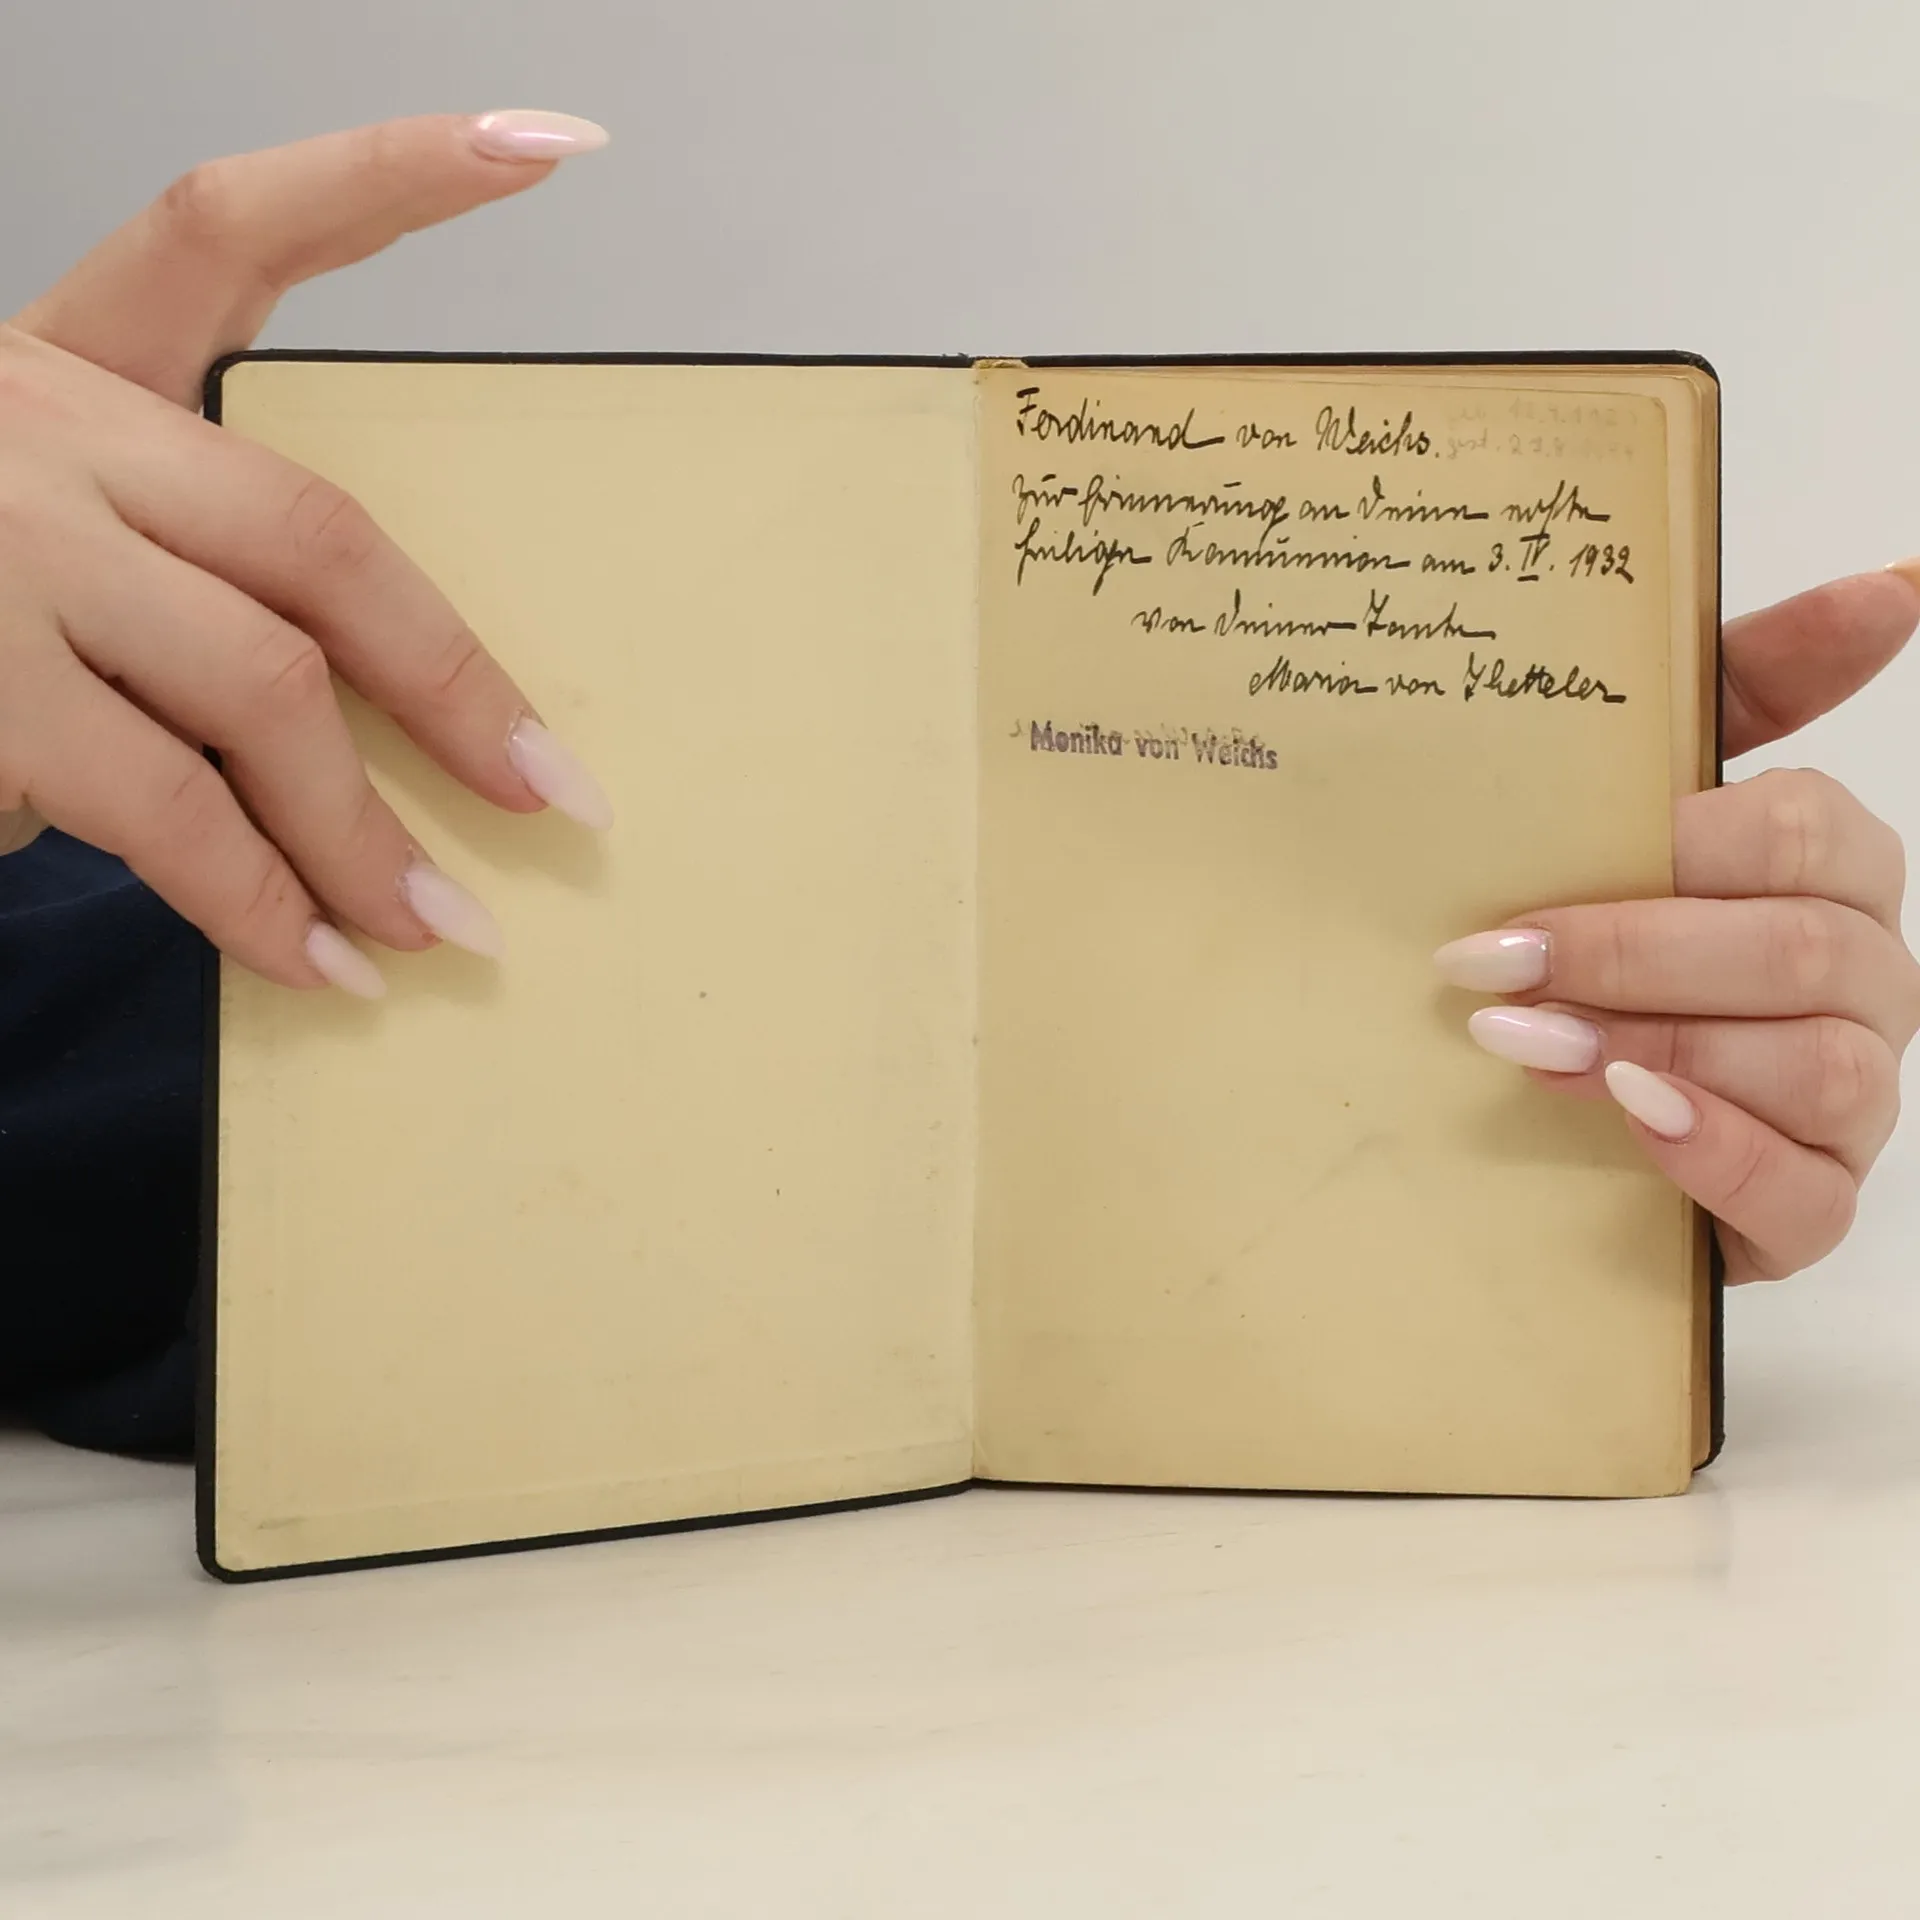 Ferdinand von Weichs.
Zur Erinnerung an Deine erste
heilige Kommunion am 3. IV. 1932
von Deiner Tante
Maria von
Monika von Weichs